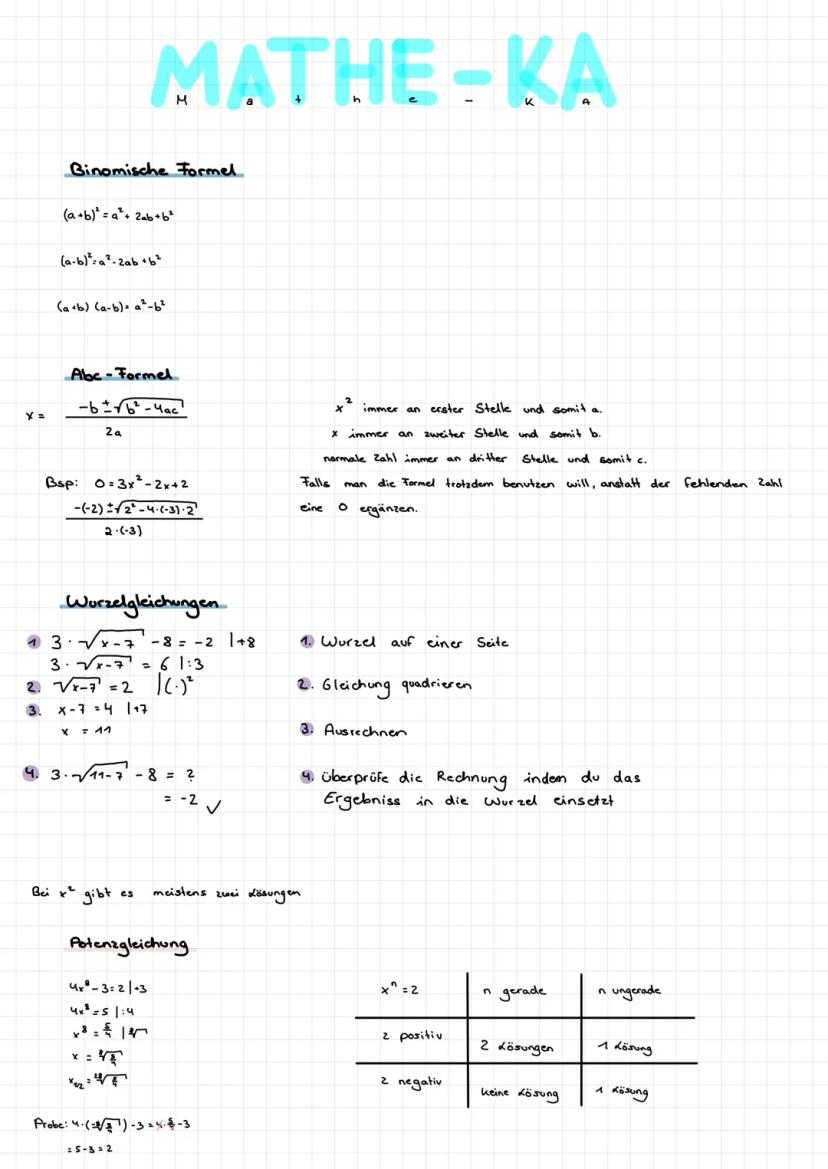 MATHE-KA
Mathe - KA
Binomische Formel
(a+b)² = a² + 2ab + b²
(a-b)² = a² - 2ab + b²
(a+b) (a-b) = a² - b²
Abc - Formel
x = (-b ± √(b² - 4ac)) / 2a
x² immer an erster Stelle und somit a.
x immer an zweiter Stelle und somit b.
normale Zahl immer an dritter Stelle und somit c.
Falls man die Formel trotzdem benutzen will, anstatt der fehlenden Zahl
eine 0 ergänzen.
Bsp: 0 = 3x² - 2x + 2
(-(-2) ± √(2² - 4·(-3)·2)) / 2·(-3)
Wurzelgleichungen
1 3 · √(x-7) - 8 = -2 | +8
3 · √(x-7) = 6 | :3
2. √(x-7) = 2 | (·)²
3. x - 7 = 4 | +7
x = 11
4. 3 · √(11-7) - 8 = ?
= -2 ✓
1. Wurzel auf einer Seite
2. Gleichung quadrieren
3. Ausrechnen
4. überprüfe die Rechnung indem du das
Ergebniss in die Wurzel einsetzt
Bei x² gibt es meistens zwei Lösungen
Potenzgleichung
4x⁸ - 3 = 2 | +3
4x⁸ = 5 | :4
x⁸ = 5/4 | ⁸√
x = ⁸√(5/4)
xⁿ = 2 n gerade n ungerade
2 positiv 2 Lösungen 1 Lösung
2 negativ keine Lösung 1 Lösung
Probe: - 3 = 4 · 5/4 - 3
= 5 - 3 = 2